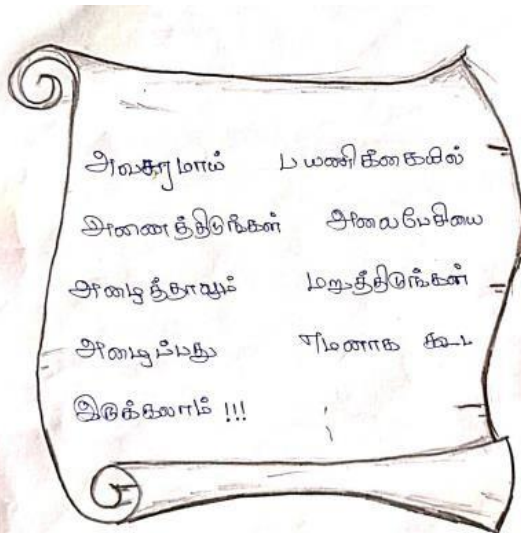 அவசரமாய் பயணிக்கையில்
அணைத்திடுங்கள் அலைபேசியை
அழைத்தாலும் மறுத்திடுங்கள்
அழைப்பது எமனாக கூட
இருக்கலாம் !!!